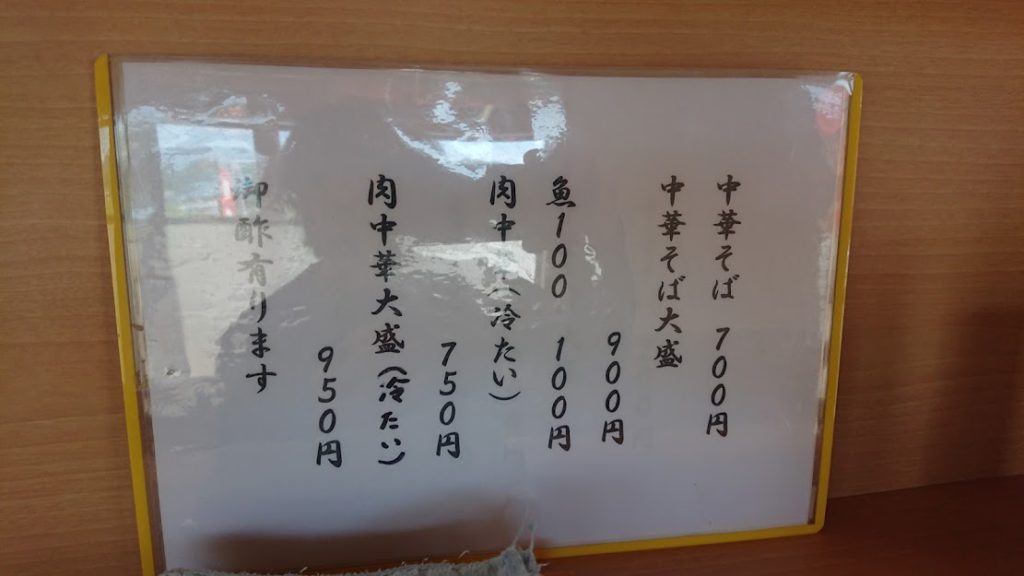 中華そば 700円
中華そば大盛
900円
魚100 100円
肉中 (冷たい)
750円
肉中華大盛(冷たい)
950円
御酢有ります